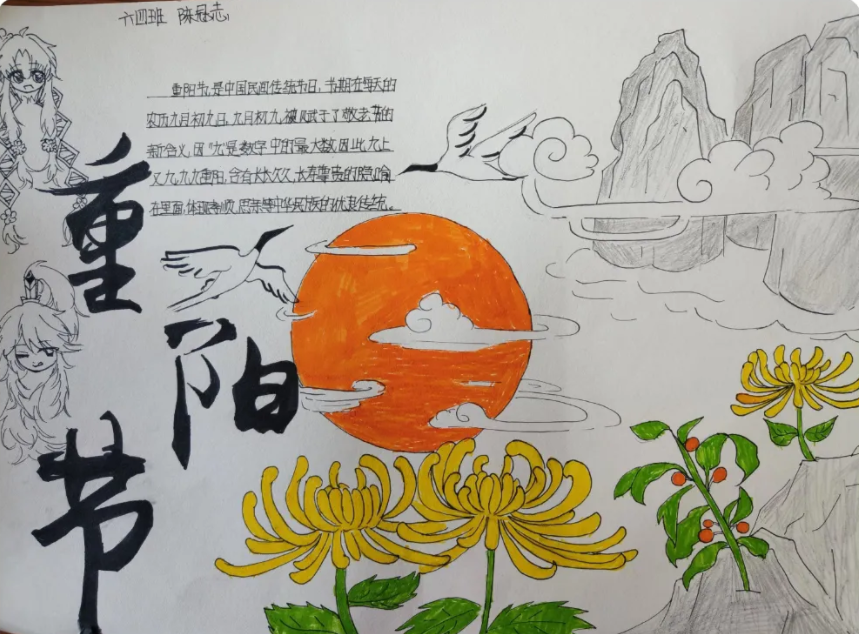 六四班 陈冠志
重阳节,是中国民间传统节日,节期在每天的
农历九月初九日,九月初九,被赋于了敬老节的
新含义,因"九"是数字中的最大数,因此九上
又九,九九重阳,含有长长久久,长寿尊贵的隐喻
在里面,体现孝顺、思亲等中华民族的优良传统。
重
阳
节